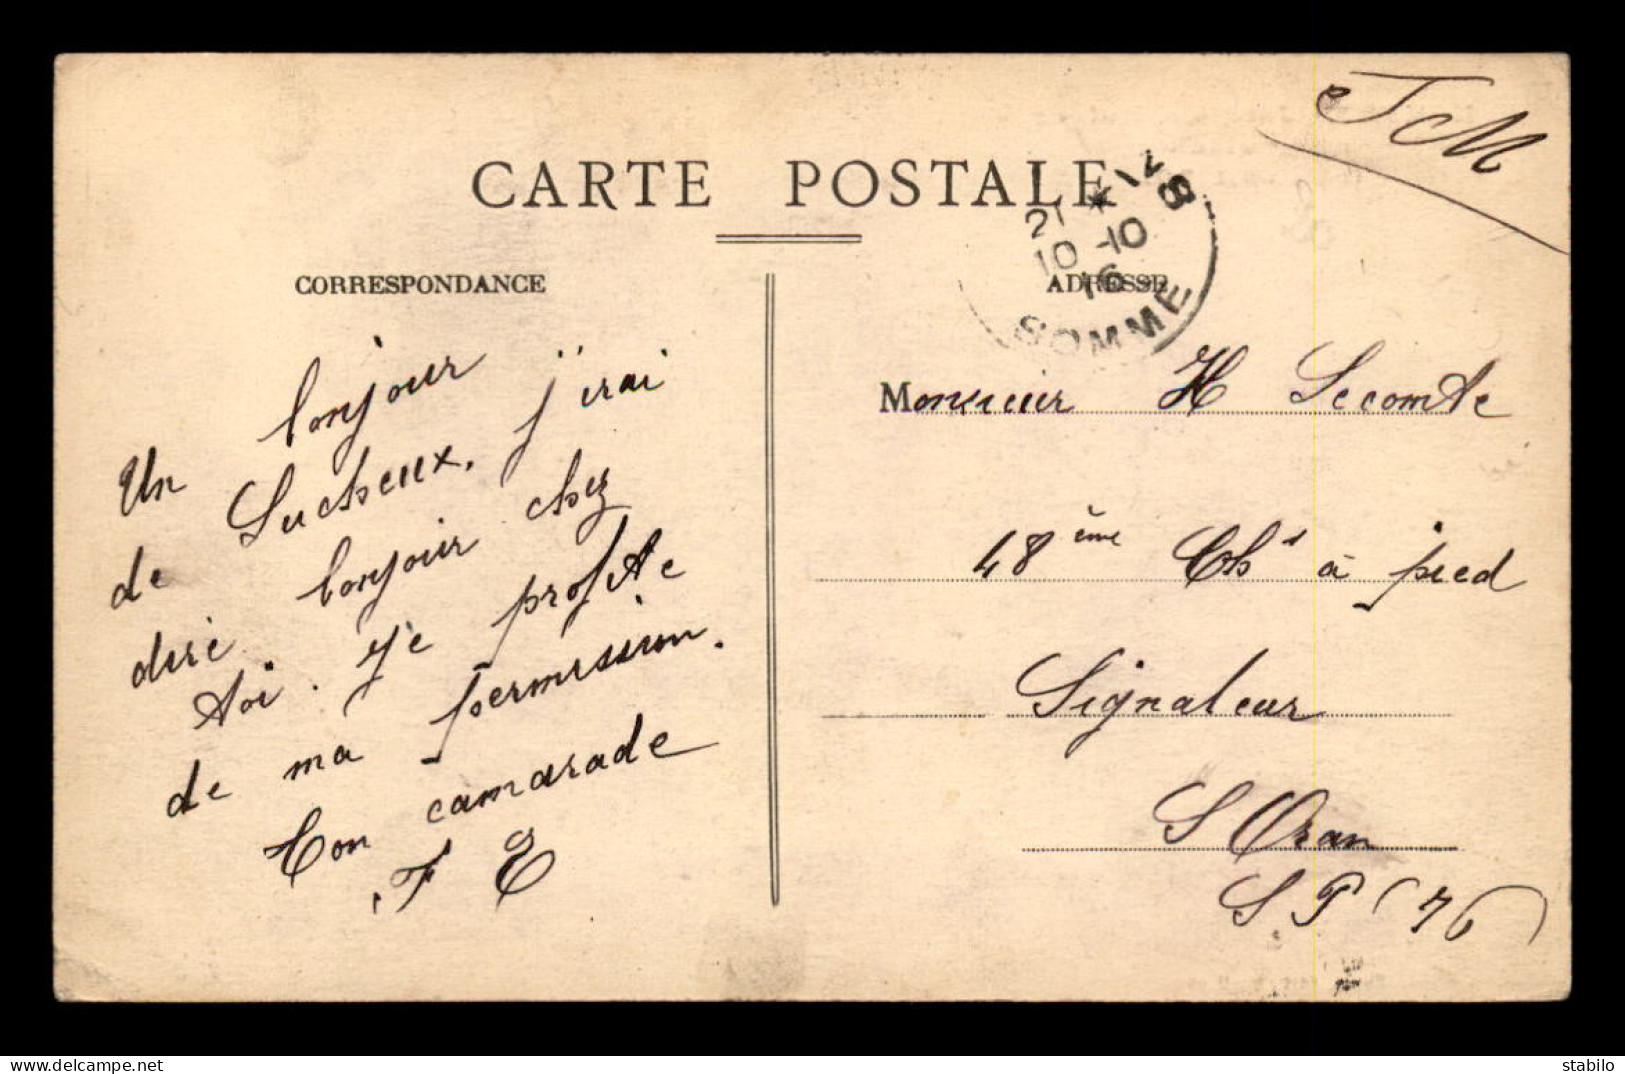 FM
CARTE POSTALE
21 * 
10 -10
16
SOMME
CORRESPONDANCE
ADRESSE
Un bonjour
de Lucheux, j'irai
dire bonjour chez
toi. Je profite
de ma permission.
Ton camarade
F E
Monsieur H Lecomte
48ème Chs à pied
Signaleur
S Oran
S P (76)
https://www.delcampe.net
stabilo